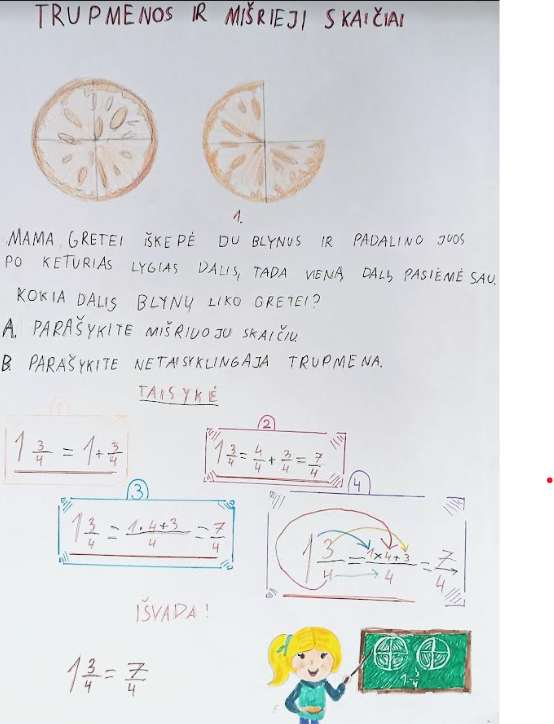 TRUPMENOS IR MIŠRIEJI SKAIČIAI
1.
MAMA GRETEI IŠKEPĖ DU BLYNUS IR PADALINO JUOS
PO KETURIAS LYGIAS DALIS, TADA VIENĄ DALĮ PASIĖMĖ SAU.
KOKIA DALIS BLYNŲ LIKO GRETEI?
A. PARAŠYKITE MIŠRIUOJU SKAIČIU
B. PARAŠYKITE NETAISYKLINGĄJA TRUPMENA.
TAISYKĖ
1
1 3/4 = 1 + 3/4
2
1 3/4 = 4/4 + 3/4 = 7/4
3
1 3/4 = 1·4+3/4 = 7/4
4
1 3/4 = 1×4+3/4 = 7/4
IŠVADA!
1 3/4 = 7/4
1 3/4